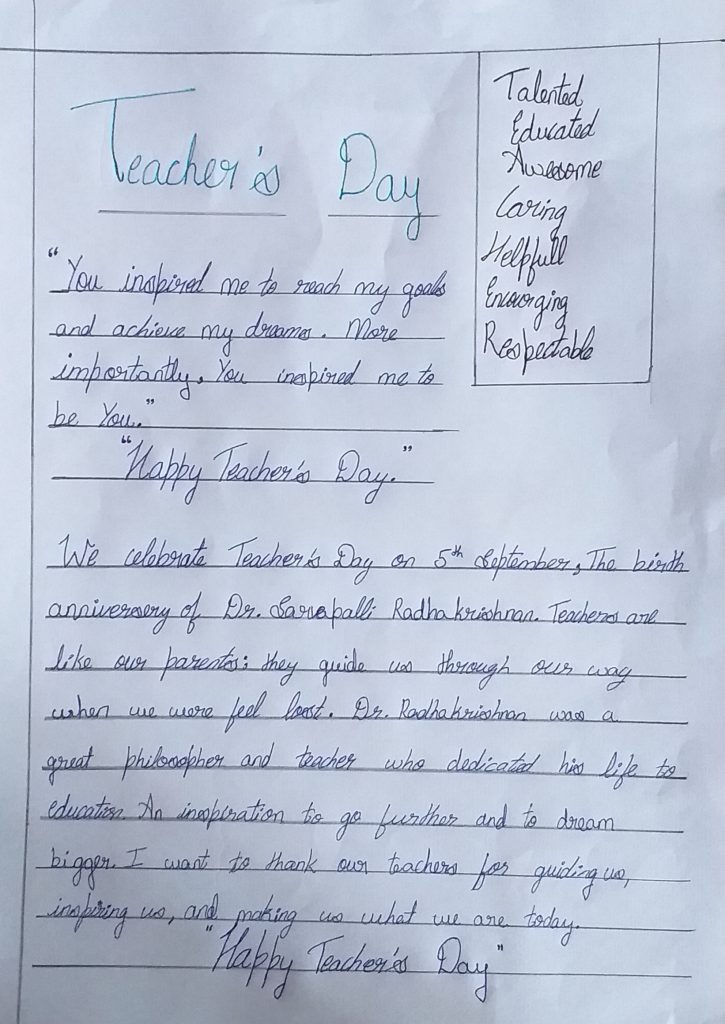 Teacher's Day
Talented
Educated
Awesome
Caring
Helpfull
Encourging
Respectable
"You inspired me to reach my goals
and achieve my dreams. More
importantly, You inspired me to
be You."
"Happy Teacher's Day."
We celebrate Teacher's Day on 5th September, The birth
anniversery of Dr. Sarvapalli Radhakrishnan. Teachers are
like our parents; they guide us through our way
when we were feel lost. Dr. Radhakrishnan was a
great philosopher and teacher who dedicated his life to
education. An inspiration to go further and to dream
bigger. I want to thank our teachers for guiding us,
inspiring us, and making us what we are today.
"Happy Teacher's Day"